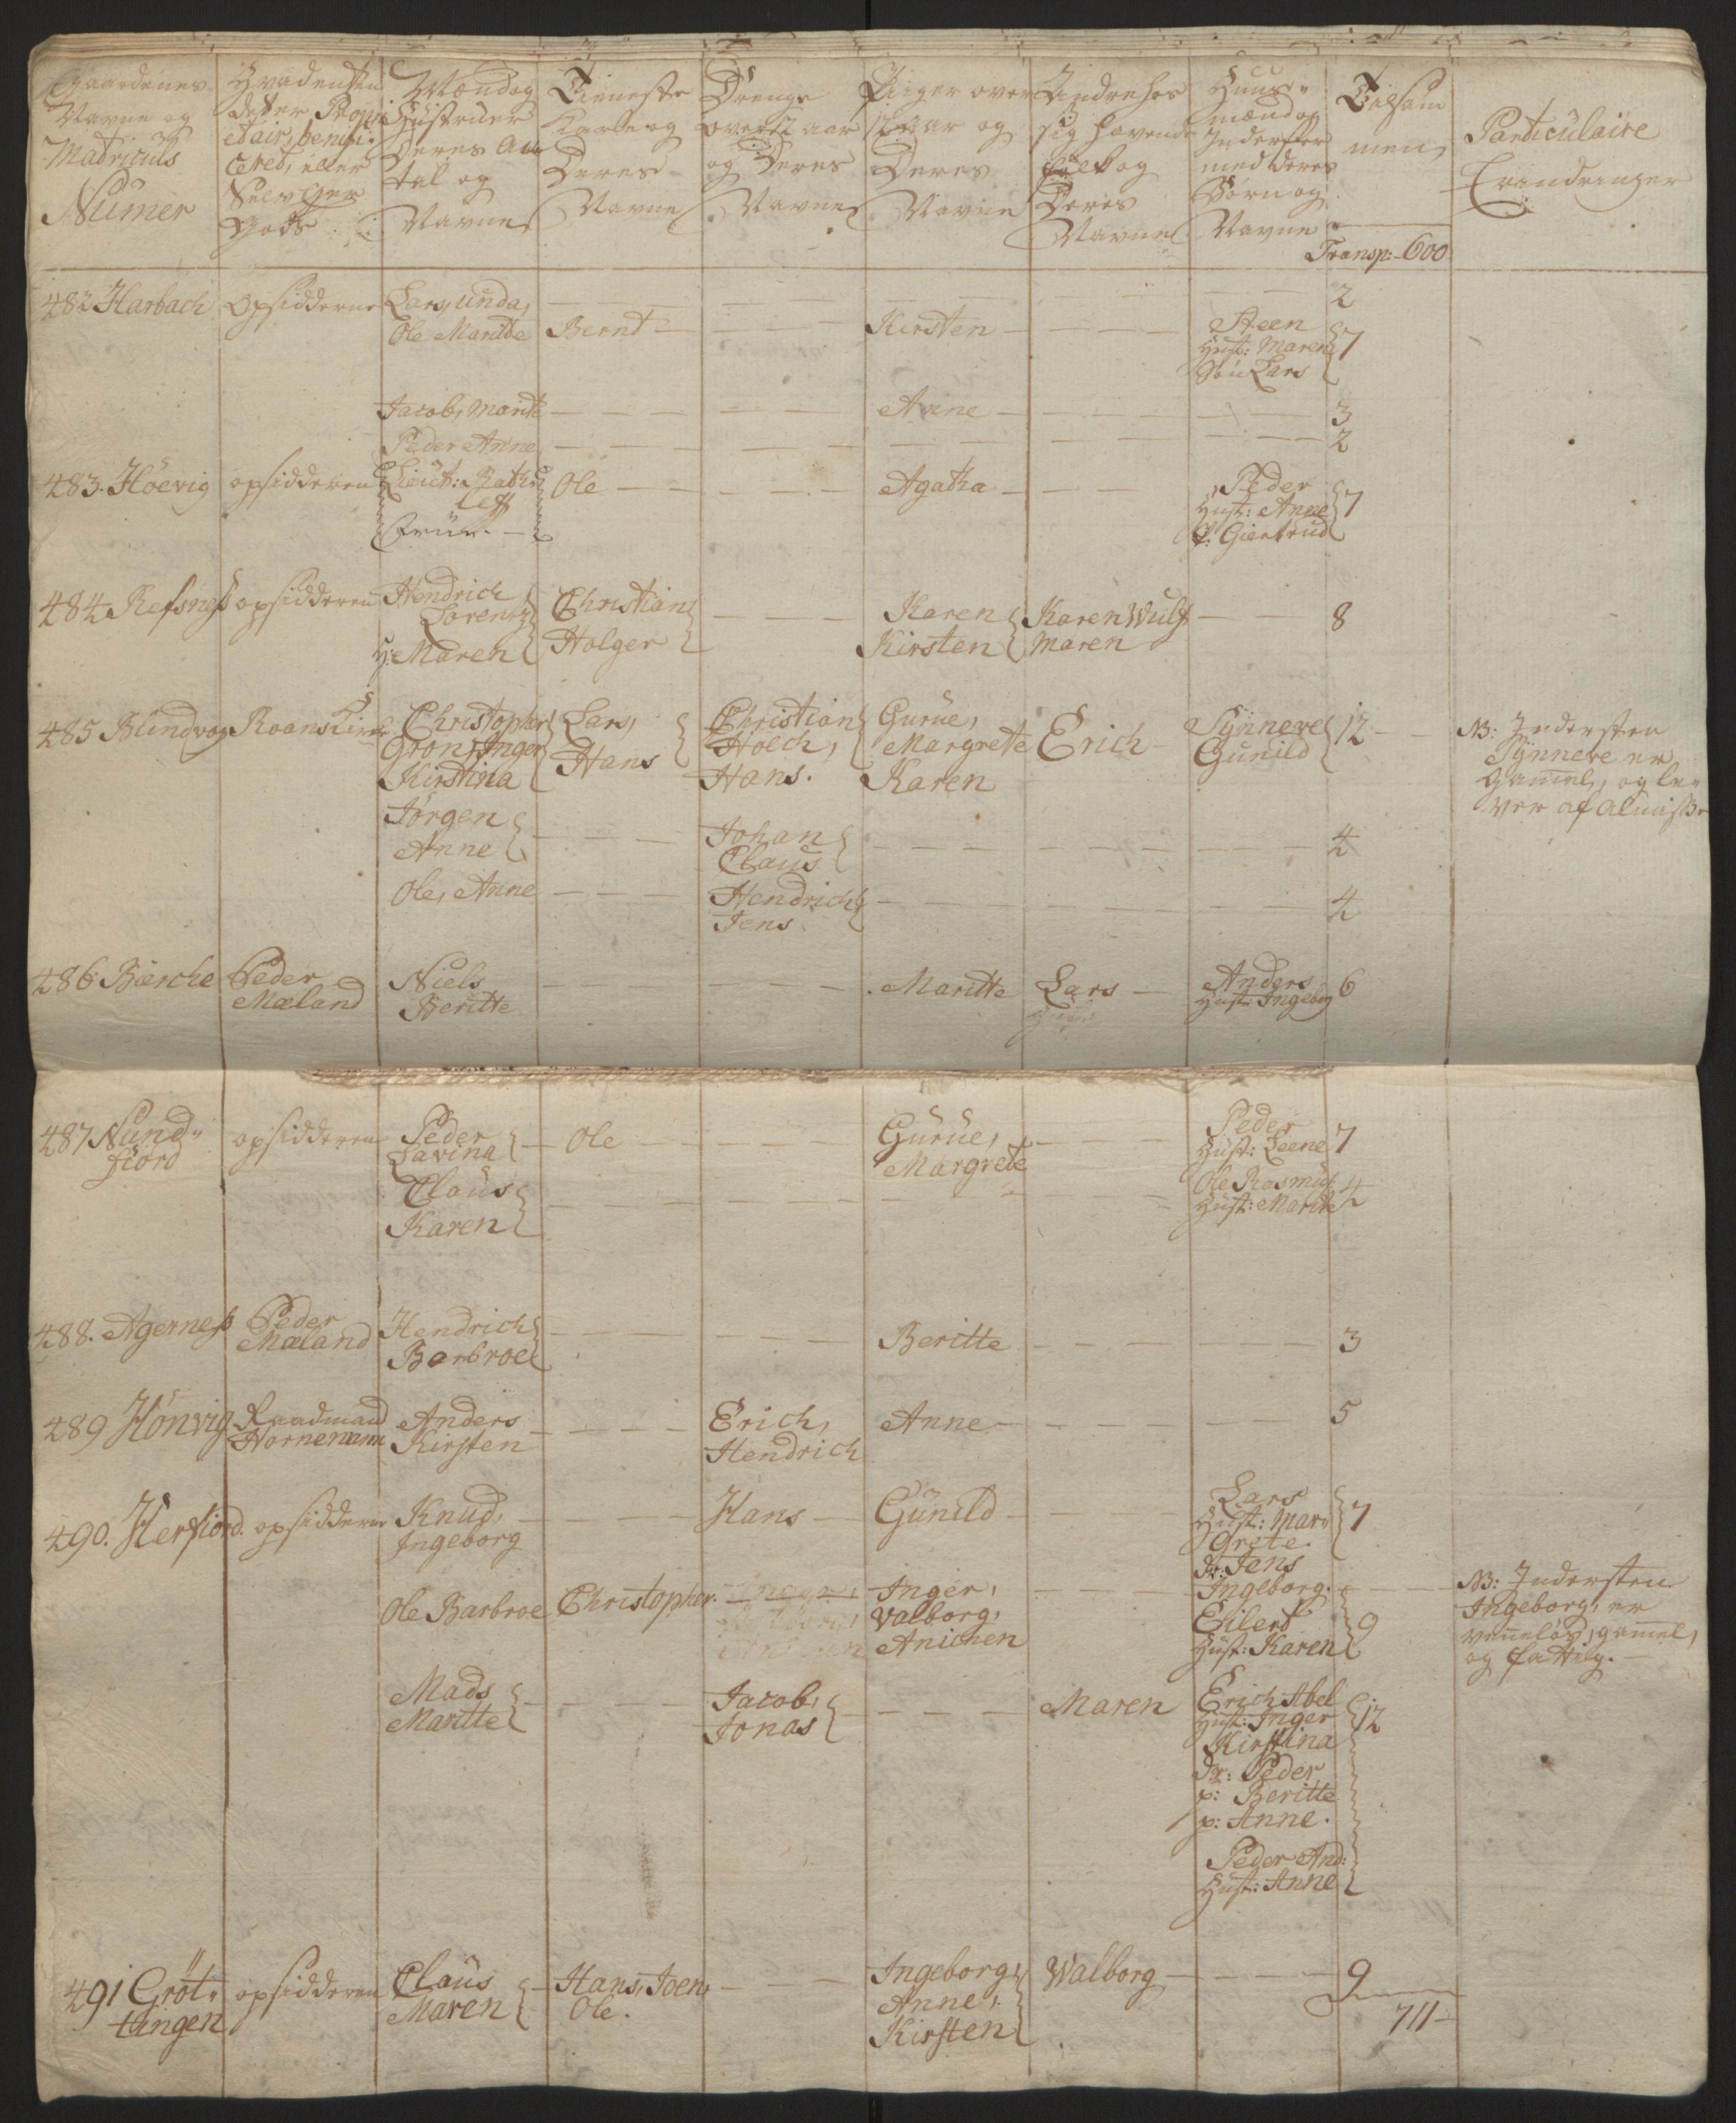 Gaardenes
Navne og
Matriculs
Numer
Hvad enten
det er Propri
etair, benifi
ceret, eller
Selv Eyer
Gods
Mænd og
Hustruer
Deres An
tal og
Navne
Tieneste
Karle og
Deres
Navne
Drenge
over 12 aar
og Deres
Navne
Piiger over
12 aar og
Deres
Navne
Andre hos
sig havende
folk og
Deres
Navne
Huus-
mænd og
Inderster
med deres
Børn og
Navne
Tilsam
men
Particulaire
Erindringer
Transp: 600
482 Harbach Opsidderne Lars, unda, — — — — 2
Ole Maritte Bernt — — Kirsten — — Steen
Hust: Maren 7
Søn Lars
Jacob, Marite — — — Anne — — — 3
Peder Anne — — — — — — 2
483. Höevig opsidderen Lieut: Rath
leff
Frue. Ole — — Agatha — — Peder
Hust: Anne 7
P: Giertrud
484 Refsness opsidderen Hendrich
Lorentz
H: Maren Christian
Holger — — Karen
Kirsten Karen Wulf
Maren — — 8
485 Blindvog Roans Kirke Christopher
Gron, Inger
Kirstina Lars,
Hans Christian
Hoech,
Hans. Gurue,
Margrete
Karen Erich — Synneve
Gunild 12 — NB: Indersten
Synneve er
Gammel, og le-
ver af Almisse
Jörgen
Anne — — Johan
Claus — — — 4
Ole, Anne — — Hendrich
Jens — — — 4
486 Bærche Peder
Mæland Niels
Beritte — — — Maritte Lars — Anders
Hust: Ingebor 6
487 Nund-
fiord opsidderen Peder
Lavina — Ole — — Gurue,
Margrete — — Peder
Hust: Leene 7
Claus
Karen — — — — Ole Rasmus
Hust: Maritte 4
488. Agerness Peder
Mæland Hendrich
Barbroe — — — Beritte — — — 3
489 Hönvig Raadmand
Hornemann Anders
Kirsten — — Erich,
Hendrich Anne — — — 5
490. Herfiord. opsidderne Knud,
Ingeborg — — Hans — Gunild — — Lars
Hust: Mar-
Grete. 7
Dr: Jens
Ole Barbroe Christopher. Inger,
Valborg,
Anichen — — Ingeborg.
Eilert
Hust: Karen 9 — NB: Indersten
Ingeborg, er
venneløs, gamel,
og fattig. —
Mads
Maritte — — Jacob,
Jonas — — Maren Erich Abel
Hust: Inger
Kirstina 12
Dr: Peder
p: Beritte
p: Anne.
Peder And:
Hust: Anne
491 Gröt-
tangen opsidderen Claus
Maren — Hans, Joen,
Ole. — — Ingeborg,
Anne,
Kirsten Walborg — — — 9
711 —